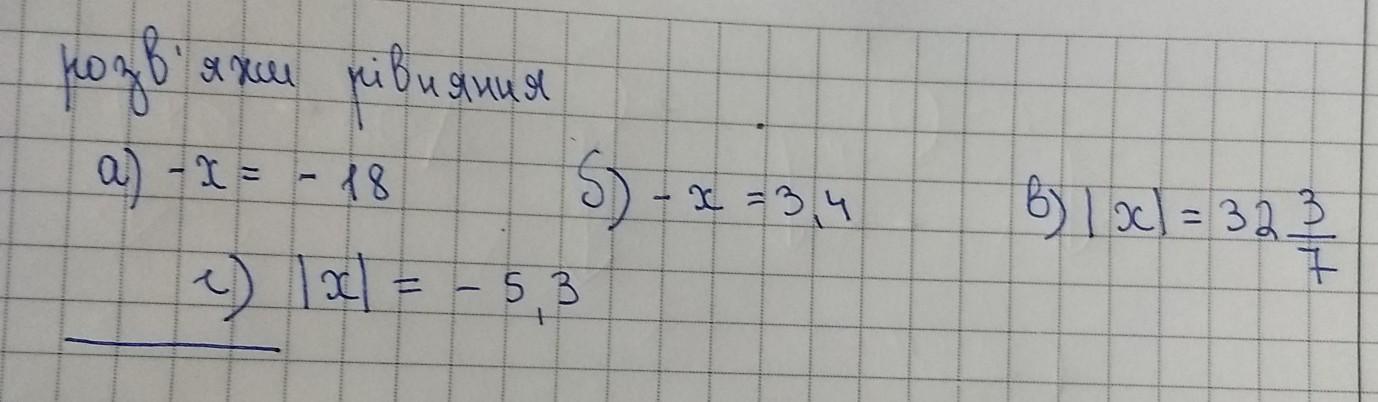 розв'яжи рівняння
а) -x = - 18 б) - x = 3,4 в) |x| = 32 3/7
г) |x| = - 5,3